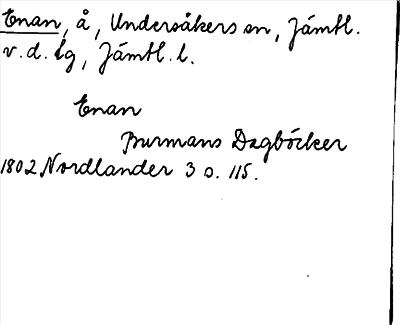 Enan, å, Undersåkers sn, Jämtl.
v.d. lg, Jämtl. l.
Enan
Burmans Dagböcker
1802 Nordlander 3 s. 115.